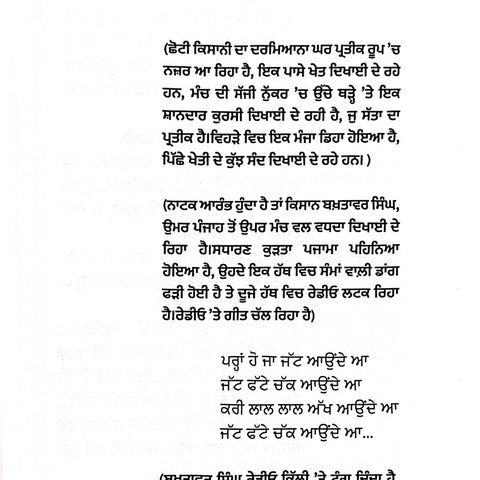 (ਛੋਟੀ ਕਿਸਾਨੀ ਦਾ ਦਰਮਿਆਨਾ ਘਰ ਪ੍ਰਤੀਕ ਰੂਪ 'ਚ
ਨਜ਼ਰ ਆ ਰਿਹਾ ਹੈ, ਇਕ ਪਾਸੇ ਖੇਤ ਦਿਖਾਈ ਦੇ ਰਹੇ
ਹਨ, ਮੰਚ ਦੀ ਸੱਜੀ ਨੁੱਕਰ 'ਚ ਉੱਚੇ ਥੜ੍ਹੇ 'ਤੇ ਇਕ
ਸ਼ਾਨਦਾਰ ਕੁਰਸੀ ਦਿਖਾਈ ਦੇ ਰਹੀ ਹੈ, ਜੁ ਸੱਤਾ ਦਾ
ਪ੍ਰਤੀਕ ਹੈ।ਵਿਹੜੇ ਵਿਚ ਇਕ ਮੰਜਾ ਡਿਹਾ ਹੋਇਆ ਹੈ,
ਪਿੱਛੇ ਖੇਤੀ ਦੇ ਕੁੱਝ ਸੰਦ ਦਿਖਾਈ ਦੇ ਰਹੇ ਹਨ। )
(ਨਾਟਕ ਆਰੰਭ ਹੁੰਦਾ ਹੈ ਤਾਂ ਕਿਸਾਨ ਬਖ਼ਤਾਵਰ ਸਿੰਘ,
ਉਮਰ ਪੰਜਾਹ ਤੋਂ ਉਪਰ ਮੰਚ ਵਲ ਵਧਦਾ ਦਿਖਾਈ ਦੇ
ਰਿਹਾ ਹੈ।ਸਧਾਰਣ ਕੁੜਤਾ ਪਜਾਮਾ ਪਹਿਨਿਆ
ਹੋਇਆ ਹੈ, ਉਹਦੇ ਇਕ ਹੱਥ ਵਿਚ ਸੰਮਾਂ ਵਾਲ਼ੀ ਡਾਂਗ
ਫੜੀ ਹੋਈ ਹੈ ਤੇ ਦੂਜੇ ਹੱਥ ਵਿਚ ਰੇਡੀਓ ਲਟਕ ਰਿਹਾ
ਹੈ।ਰੇਡੀਓ 'ਤੇ ਗੀਤ ਚੱਲ ਰਿਹਾ ਹੈ)
ਪਰ੍ਹਾਂ ਹੋ ਜਾ ਜੱਟ ਆਉਂਦੇ ਆ
ਜੱਟ ਫੱਟੇ ਚੱਕ ਆਉਂਦੇ ਆ
ਕਰੀ ਲਾਲ ਲਾਲ ਅੱਖ ਆਉਂਦੇ ਆ
ਜੱਟ ਫੱਟੇ ਚੱਕ ਆਉਂਦੇ ਆ...
(ਬਖ਼ਤਾਵਰ ਸਿੰਘ ਰੇਡੀਓ ਕਿੱਲੀ 'ਤੇ ਟੰਗ ਦਿੰਦਾ ਹੈ,